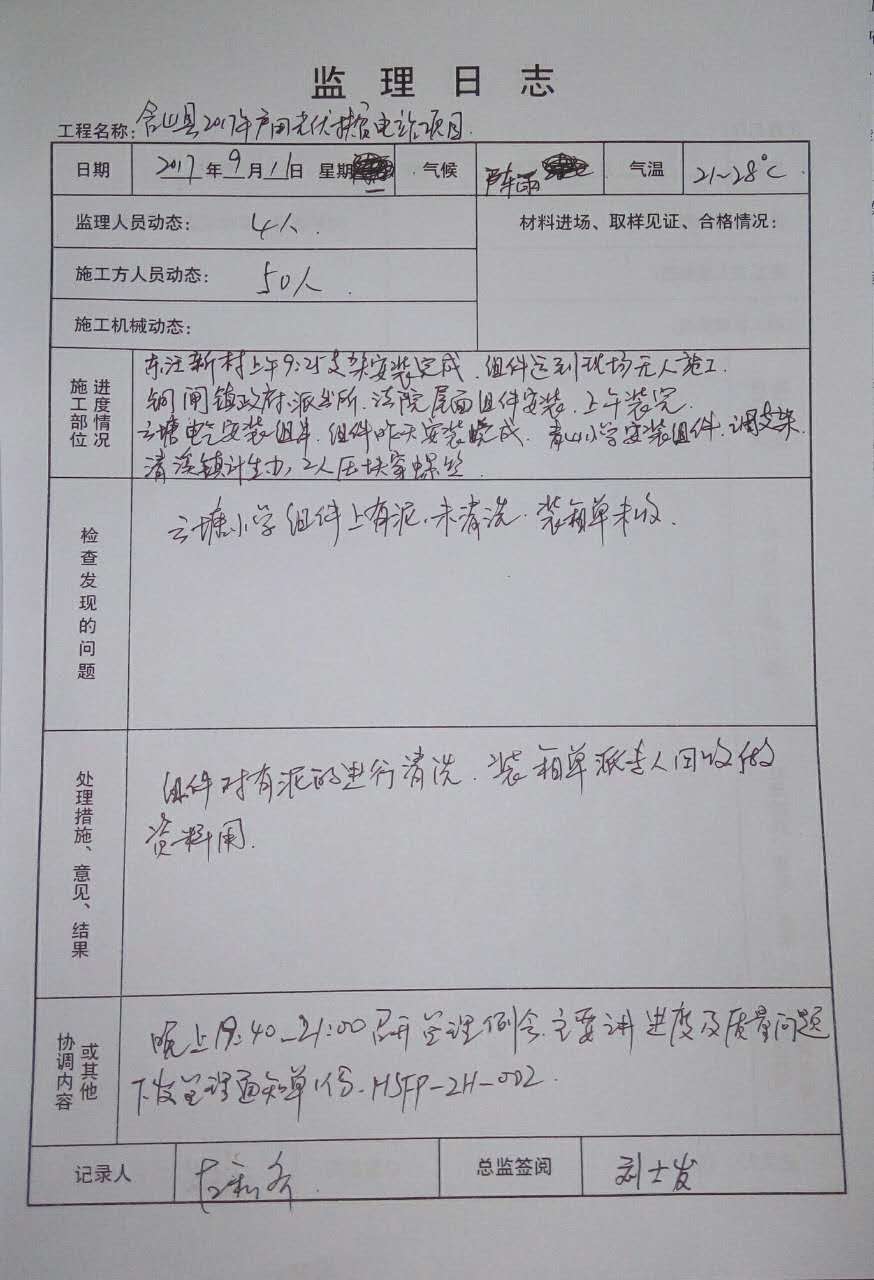 监理日志
工程名称：含山县2017年户用光伏扶贫电站项目
日期 2017年9月11日 星期一 气候 雨 气温 21~28℃
监理人员动态： 4人. 材料进场、取样见证、合格情况：
施工方人员动态： 50人.
施工机械动态：
施工部位进度情况
东汪新村上午9:25支架安装完成.组件运到现场无人施工
铜闸镇政府.派出所.法院屋面组件安装.上午装完
云塘 安装组件.组件昨天安装完成. 小学安装组件.调支架
清溪镇计生办,2人压块穿螺丝
检查发现的问题
云塘小学组件上有泥.未清洗.装箱单未收.
处理措施、意见、结果
组件对有泥的进行清洗.装箱单派专人回收做
资料用.
协调内容或其他
晚上19:40-21:00召开监理例会.主要讲进度及质量问题
下发监理通知单1份.HSFP-ZH-002.
记录人 总监签阅 刘士发